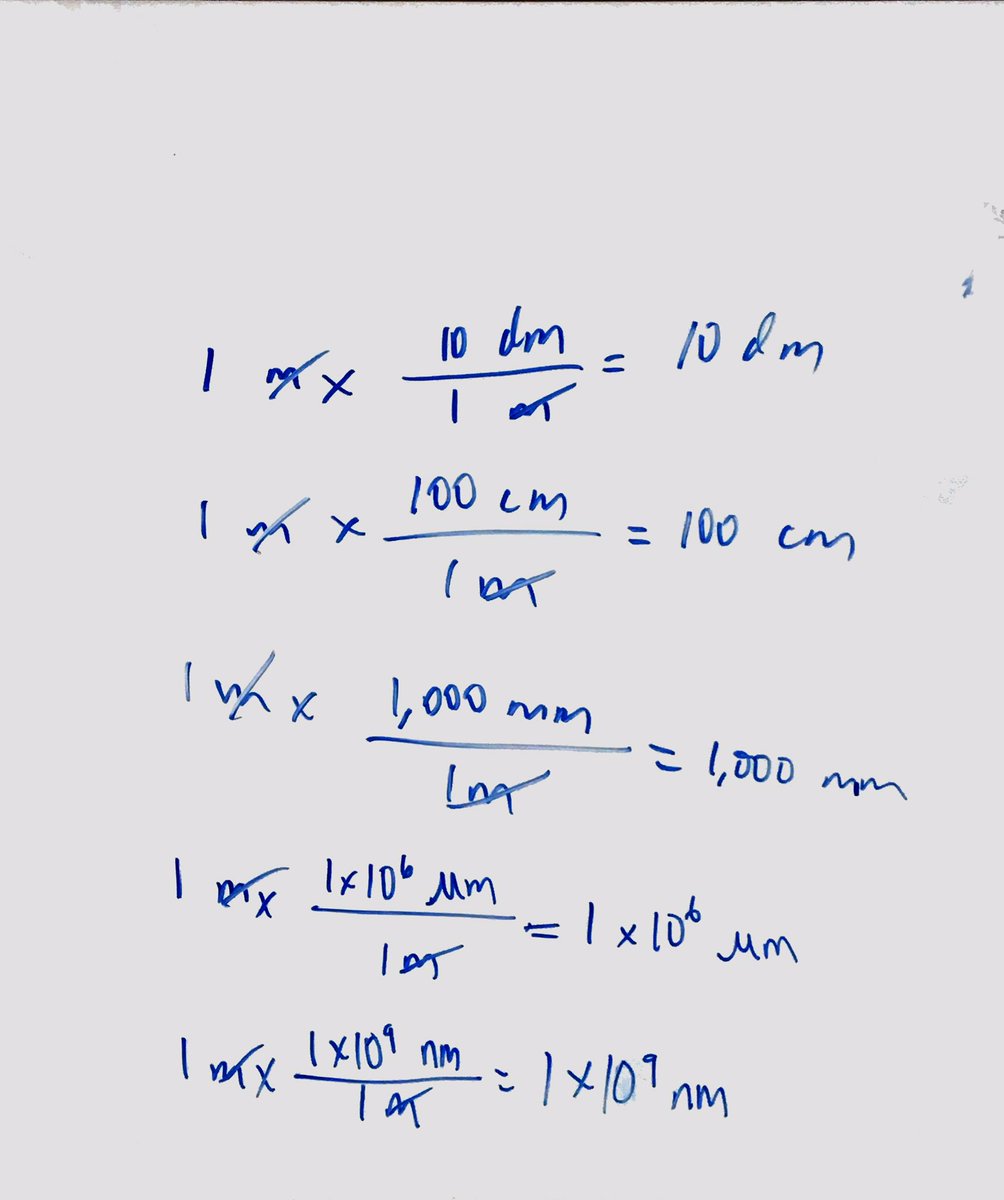 1 m x 10 dm / 1 m = 10 dm
1 m x 100 cm / 1 m = 100 cm
1 m x 1,000 mm / 1 m = 1,000 mm
1 m x 1x10⁶ μm / 1 m = 1 x 10⁶ μm
1 m x 1x10⁹ nm / 1 m = 1 x 10⁹ nm